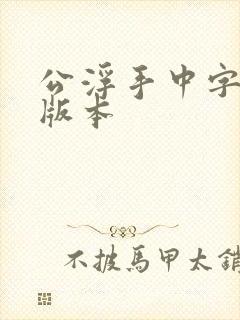 公浮手中字
版本
不披馬甲太銷